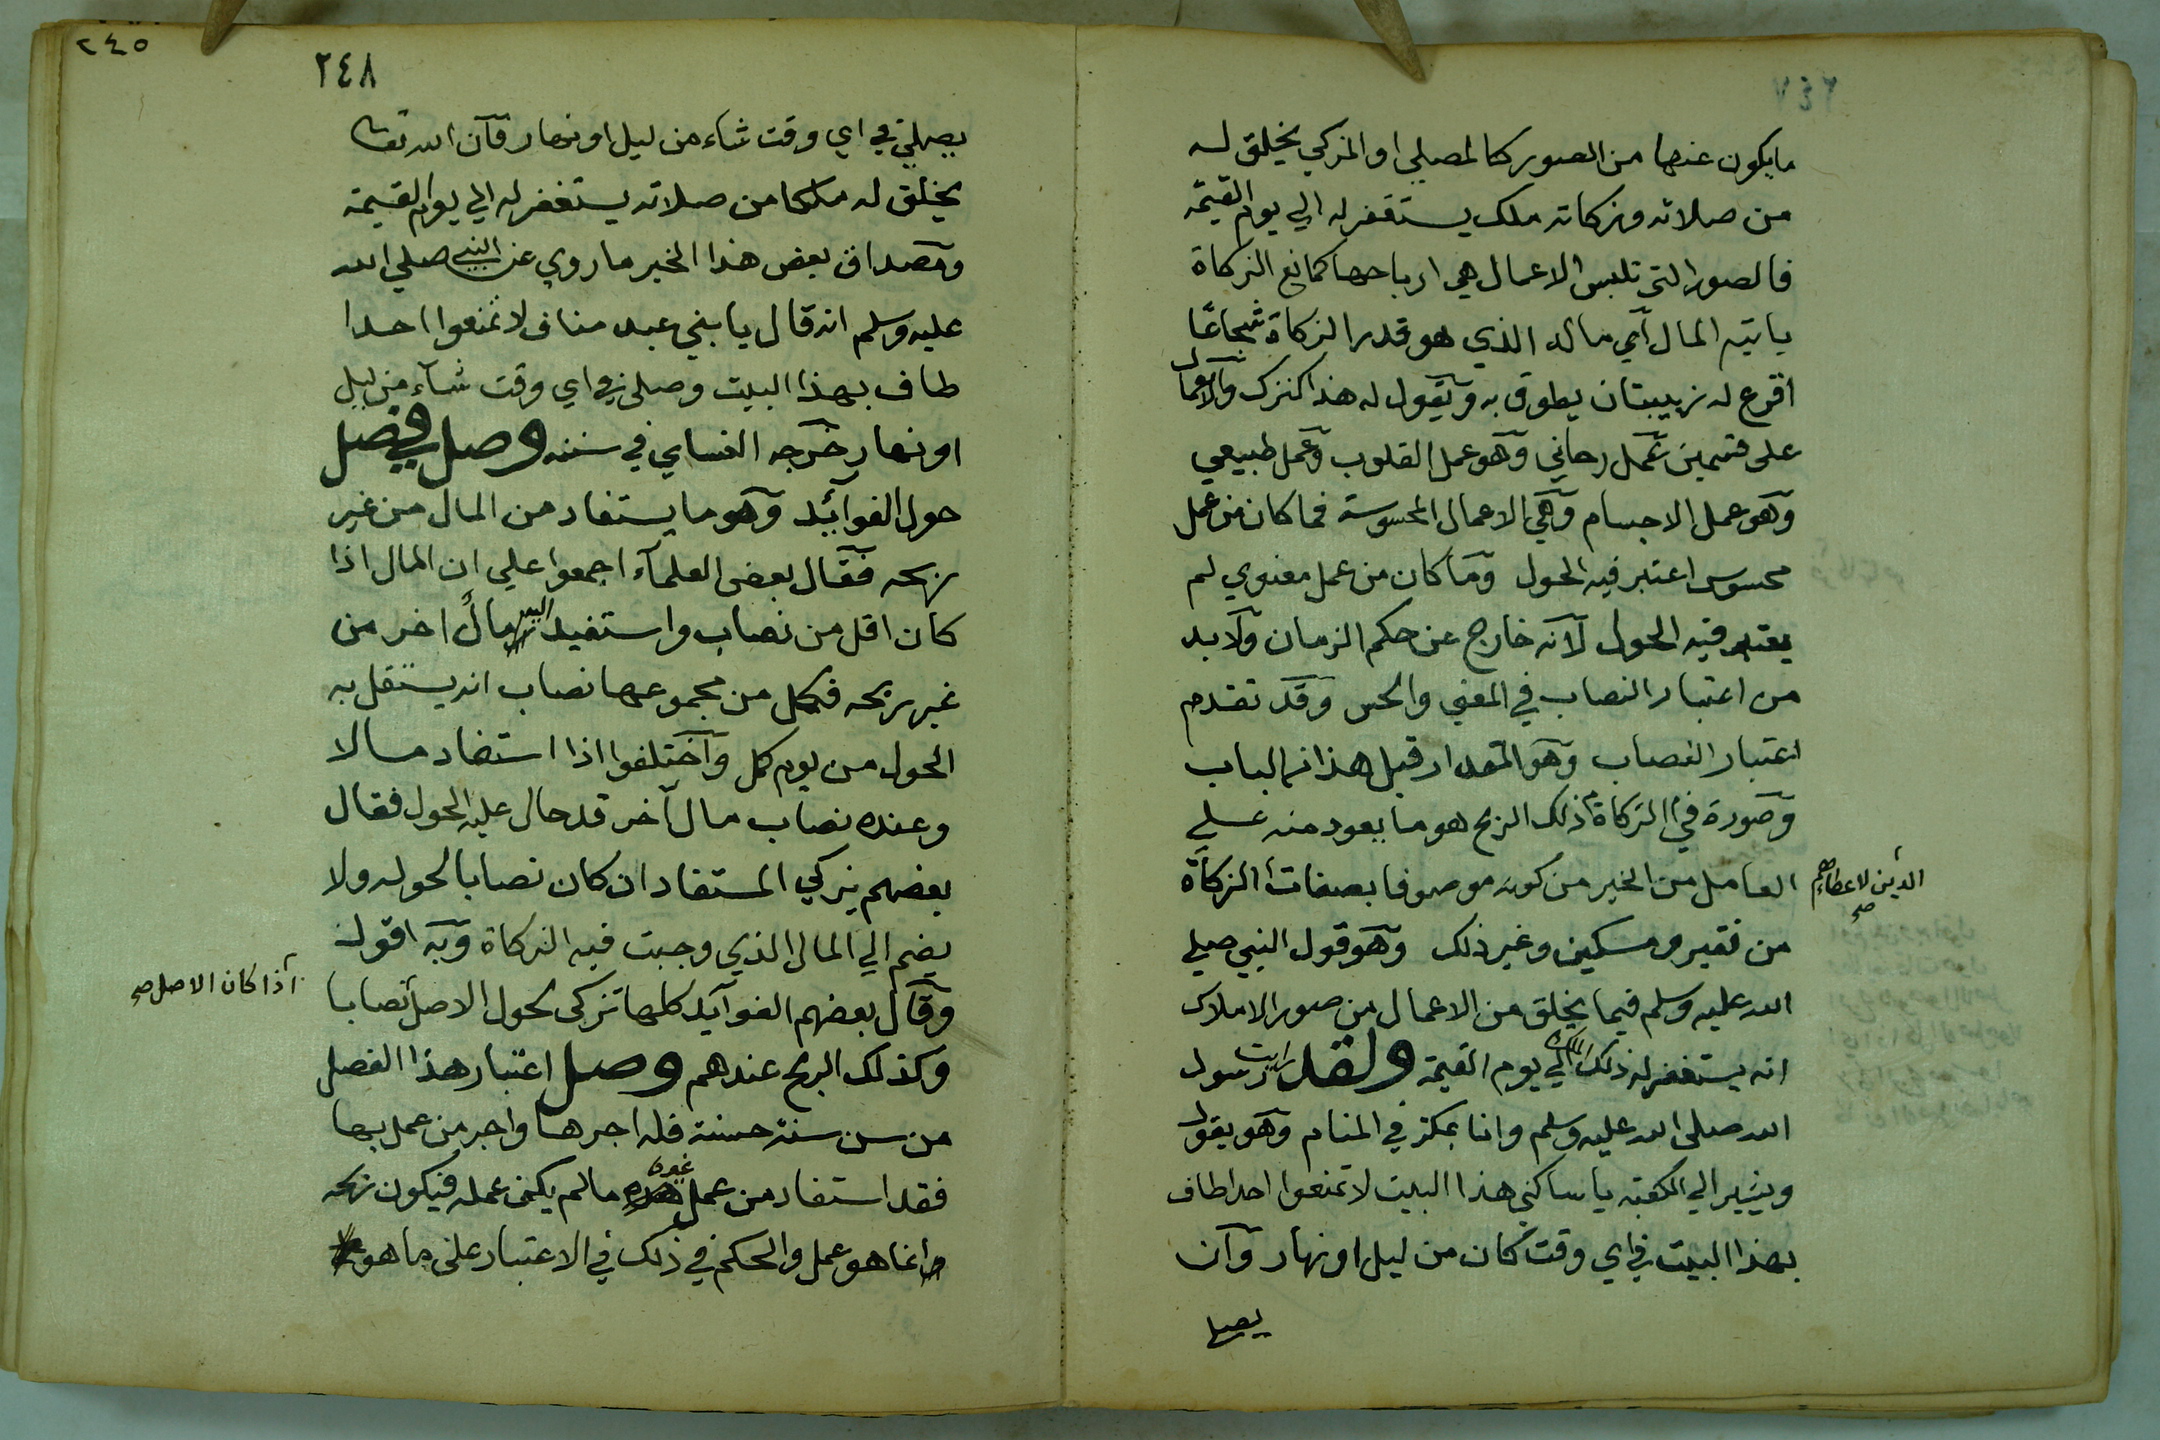 ما يكون عنها من الصور كالمصلي او المزكي يخلق له
من صلاته وزكاته ملك يستغفر له الي يوم القيمة
فالصور التي تلبس الاعمال هي ارباحها كمانع الزكاة
ياتيه المال اي ماله الذي هو قدر الزكاة شجاعًا
اقرع له زبيبتان يطوق به ويقول له هذا كنزك والاعمال
على قسمين عمل رحاني وهو عمل القلوب وعمل طبيعي
وهو عمل الاجسام وهي الاعمال المحسوسة فما كان من عمل
محسوس اعتبر فيه الحول وما كان من عمل معنوي لم
يعتبر فيه الحول لانه خارج عن حكم الزمان ولابد
من اعتبار النصاب في المعني والحس وقد تقدم
اعتبار النصاب وهو المقدار قبل هذا من الباب
وصورة في الزكاة ذلك الربح هو ما يعود منه علي
العامل من الخير من كونه موصوفا بصفات الزكاة
الذين لاعطاءهم صح
من فقير ومسكين وغير ذلك وهو قول النبي صلي
الله عليه وسلم فيما يخلق من الاعمال من صور الاملاك
انه يستغفر له ذلك الملك الي يوم القيمة ولقد رايت رسول
الله صلى الله عليه وسلم وانا بمكة في المنام وهو يقول
ويشير الي الكعبة يا ساكني هذا البيت لا تمنعوا احدا طاف
بهذا البيت في اي وقت كان من ليل او نهار وان
يصلي
٢٤٥
٢٤٨
يصلي في اي وقت شاء من ليل او نهار فان الله تعالى
يخلق له ملكا من صلاته يستغفر له الي يوم القيمة
ومصداق بعض هذا الخبر ما روي عن النبي صلي الله
عليه وسلم انه قال يا بني عبد مناف لا تمنعوا احدا
طاف بهذا البيت وصلى في اي وقت شاء من ليل
او نهار خرجه النساي في سننه وصل في فصل
حول الفوائد وهو ما يستفاد من المال من غير
ربحه فقال بعض العلماء اجمعوا علي ان المال اذا
كان اقل من نصاب واستفيد اليه مالٌ اخر من
غير ربحه فكمل من مجموعهما نصاب انه يستقبل به
الحول من يوم كمل واختلفوا اذا استفاد مالا
وعنده نصاب مال آخر قد حال عليه الحول فقال
بعضهم يزكي المستفاد ان كان نصابا لحوله ولا
يضم الي المال الذي وجبت فيه الزكاة وبه اقول
وقال بعضهم الفوايد كلها تزكى لحول الاصل نصابا
اذا كان الاصل صح
وكذلك الربح عندهم وصل اعتبار هذا الفصل
من سن سنة حسنة فله اجرها واجر من عمل بها
فقد استفاد من عمل غيره ما لم يكن عمله فيكون ربحه
وانما هو عمل والحكم في ذلك في الاعتبار على ما هو